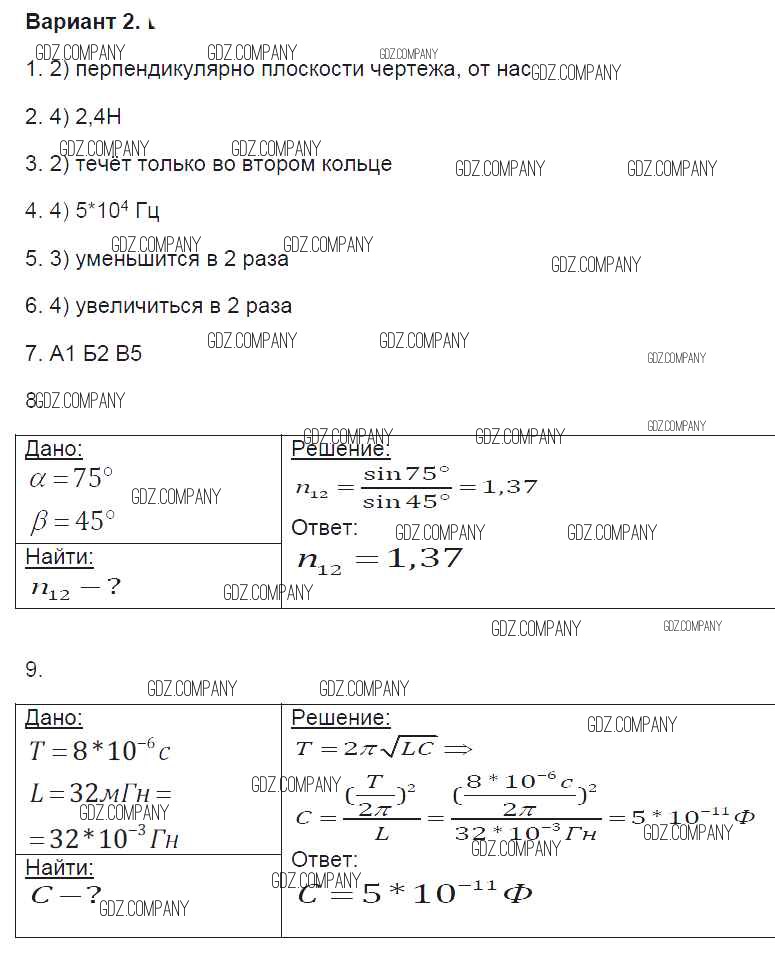 Вариант 2.
GDZ.COMPANY GDZ.COMPANY GDZ.COMPANY
1. 2) перпендикулярно плоскости чертежа, от нас
GDZ.COMPANY
2. 4) 2,4Н
GDZ.COMPANY GDZ.COMPANY
3. 2) течёт только во втором кольце
GDZ.COMPANY GDZ.COMPANY
4. 4) 5*10⁴ Гц
GDZ.COMPANY GDZ.COMPANY
5. 3) уменьшится в 2 раза
GDZ.COMPANY
6. 4) увеличиться в 2 раза
GDZ.COMPANY GDZ.COMPANY
7. А1 Б2 В5
GDZ.COMPANY
8.
GDZ.COMPANY
GDZ.COMPANY
GDZ.COMPANY GDZ.COMPANY
Дано:
α = 75°
GDZ.COMPANY
β = 45°
Найти:
n₁₂ − ?
Решение:
n₁₂ = sin 75° / sin 45° = 1,37
Ответ:
GDZ.COMPANY GDZ.COMPANY
n₁₂ = 1,37
GDZ.COMPANY
GDZ.COMPANY GDZ.COMPANY
9.
GDZ.COMPANY GDZ.COMPANY
Дано:
T = 8*10⁻⁶ с
L = 32мГн =
GDZ.COMPANY
= 32*10⁻³ Гн
Найти:
C − ?
GDZ.COMPANY
Решение:
GDZ.COMPANY
T = 2π√LC ⇒
GDZ.COMPANY
C = (T / 2π)² / L = (8 * 10⁻⁶ с / 2π)² / 32 * 10⁻³ Гн = 5 * 10⁻¹¹ Ф
GDZ.COMPANY
GDZ.COMPANY
Ответ:
GDZ.COMPANY
C = 5 * 10⁻¹¹ Ф